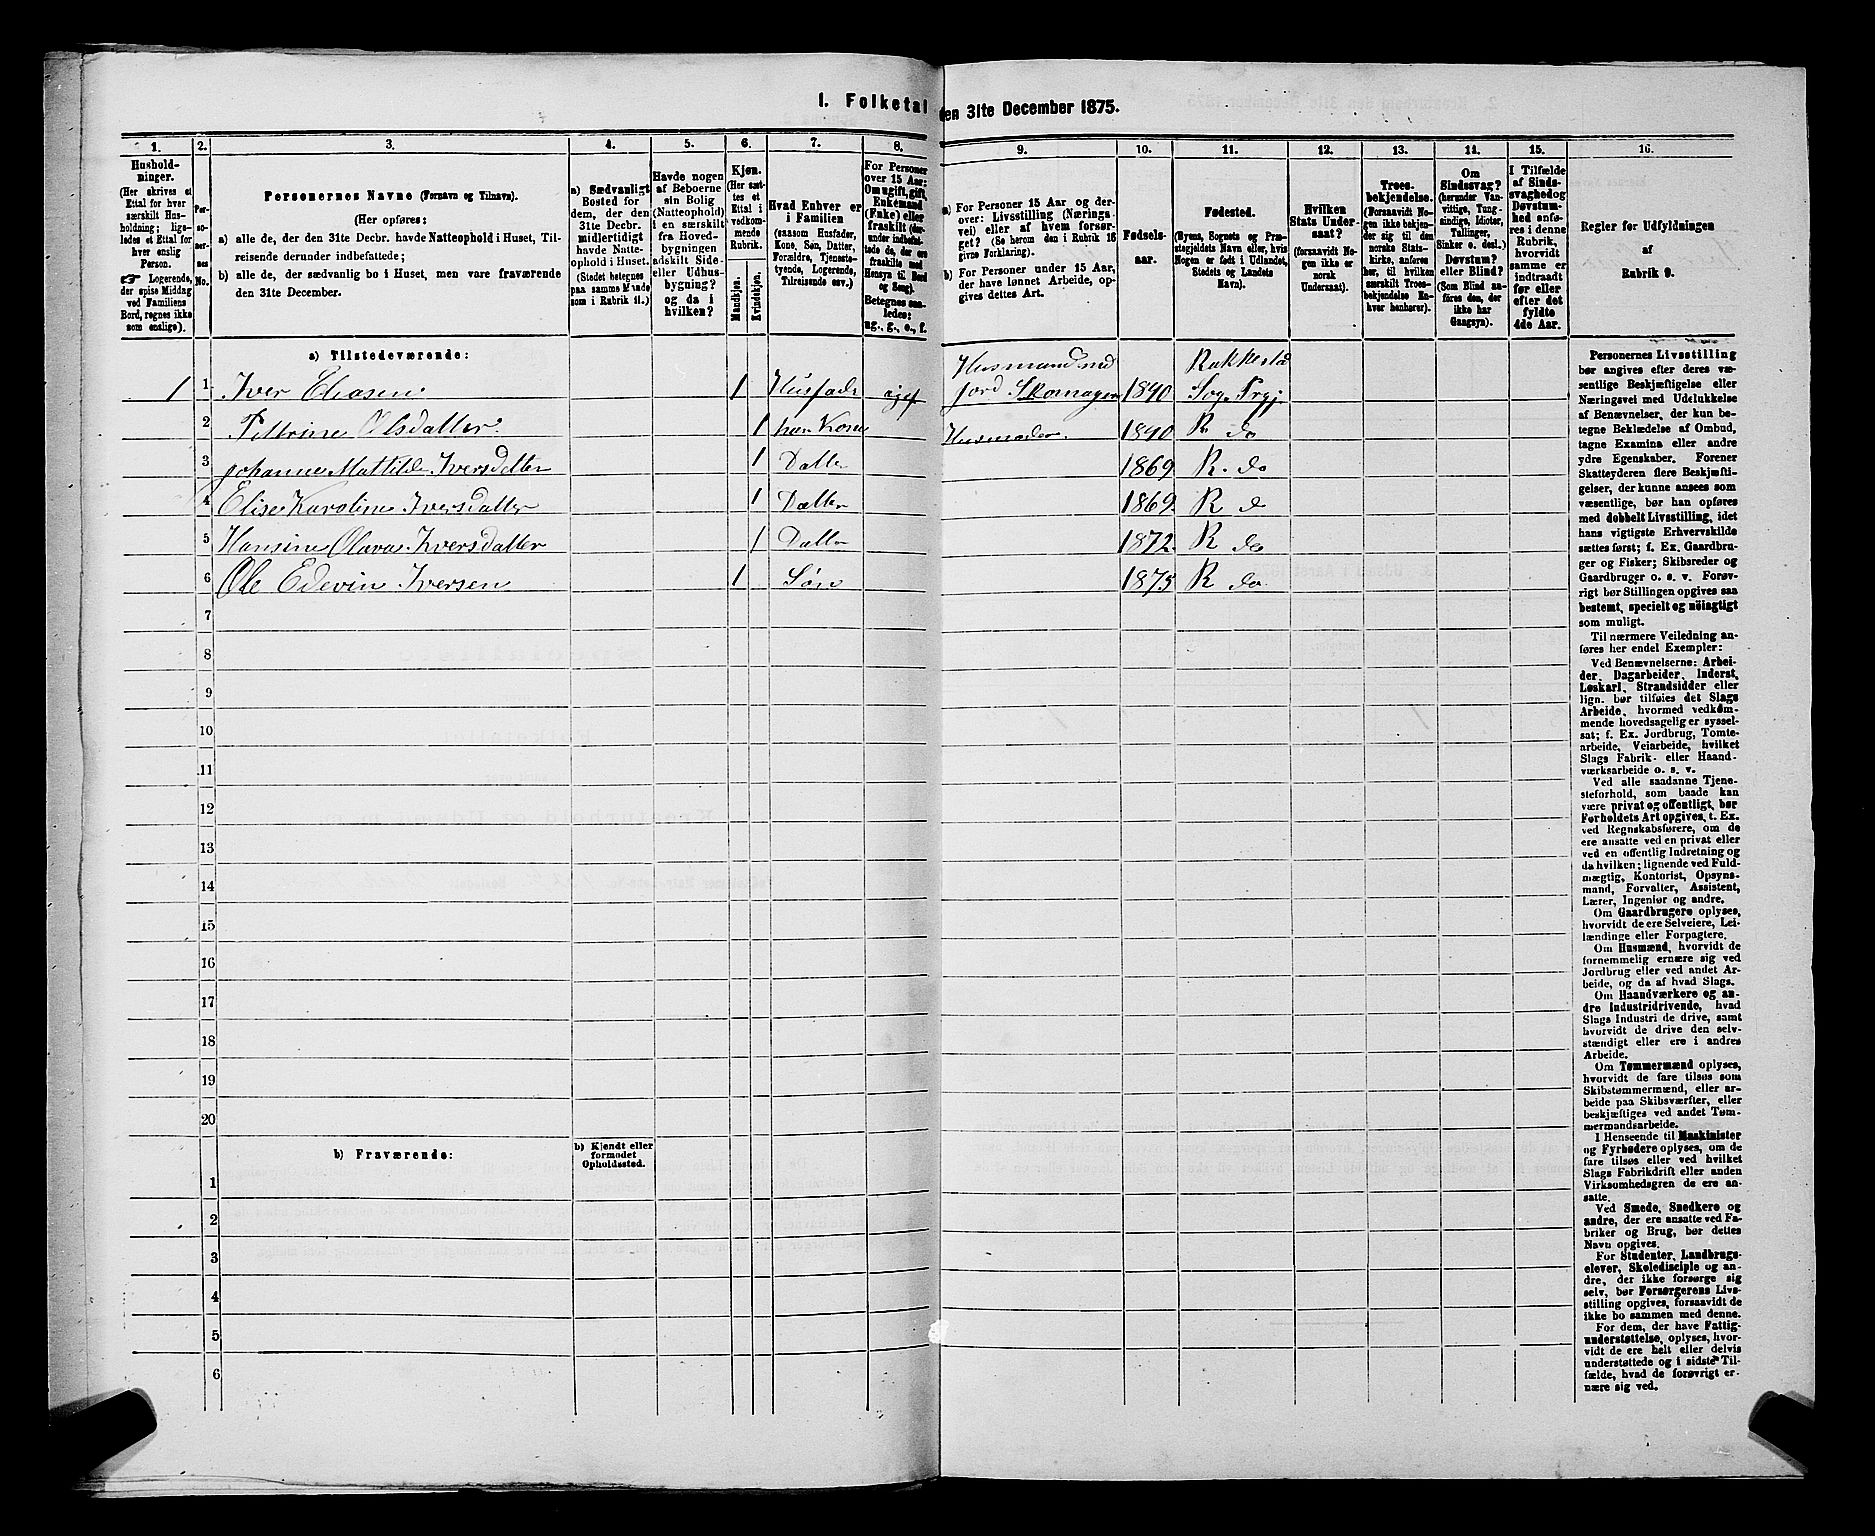 I. Folketal
den 31te December 1875.
1.
2.
3.
4.
5.
6.
7.
8.
9.
10.
11.
12.
13.
14.
15.
16.
Hushold-
ninger.
(Her skrives et
Ettal for hver
særskilt Hus-
holdning; lige-
ledes et Ettal for
hver enslig
Person.
☞ Logerende,
der spise Middag
ved Familiens
Bord, regnes ikke
som enslige).
Per-
so-
ner-
nes
No.
Personernes Navne (Fornavn og Tilnavn).
(Her opføres:
a) alle de, der den 31te Decbr. havde Natteophold i Huset, Til-
reisende derunder indbefattede;
b) alle de, der sædvanlig bo i Huset, men vare fraværende
den 31te December.
a) Sædvanligt
Bosted for
dem, der den
31te Decbr.
midlertidigt
havde Natte-
ophold i Huset.
(Stedet betegnes
paa samme Maade
som i Rubrik 11.)
Havde nogen
af Beboerne
sin Bolig
(Natteophold)
i en særskilt
fra Hoved-
bygningen
adskilt Side-
eller Udhus-
bygning?
og da i
hvilken?
Kjøn.
(Her sæt-
tes et
Ettal i
vedkom-
mende
Rubrik.
Mandkjøn.
Kvindekjøn.
Hvad Enhver er
i Familien
(saasom Husfader,
Kone, Søn, Datter,
Forældre, Tjeneste-
tyende, Logerende,
Tilreisende osv.)
For Personer
over 15 Aar:
Om ugift, gift,
Enkemand
(Enke) eller
fraskilt (der-
under indbefat-
tede de, der ere
fraskilte med
Hensyn til Bord
og Seng).
Betegnes saa-
ledes:
ug., g., e., f.
a) For Personer 15 Aar og der-
over: Livsstilling (Nærings-
vei) eller af hvem forsør-
get? (Se herom den i Rubrik 16
givne Forklaring).
b) For Personer under 15 Aar,
der have lønnet Arbeide, op-
gives dettes Art.
Fødsels-
aar.
Fødested.
(Byens, Sognets og Præ-
stegjeldets Navn eller, hvis
Nogen er født i Udlandet,
Stedets og Landets
Navn).
Hvilken
Stats Under-
saat?
(forsaavidt No-
gen ikke er
norsk
Undersaat).
Troes-
bekjendelse.
(Forsaavidt No-
gen ikke bekjen-
der sig til den
norske Stats-
kirke, anføres
her, til hvilken
særskilt Troes-
bekjendelse En-
hver henhører).
Om
Sindssvag?
(herunder Van-
vittige, Tung-
sindige, Idioter,
Tullinger,
Sinker o. desl.)
Døvstum?
eller Blind?
(Som Blind an-
føres den, der
ikke har
Gangsyn).
I Tilfælde
af Sinds-
svaghed og
Døvstum-
hed anfø-
res i denne
Rubrik,
hvorvidt
samme er
indtraadt
før eller
efter det
fyldte
4de Aar.
Regler for Udfyldningen
af
Rubrik 9.
a) Tilstedeværende:
1 1 Iver Eliasen 1 Husfader gift Husmand med Jord Skomager 1840 Rakkestad Sog. Prgj.
2 Pettrine Olsdatter 1 hans Kone Husmoder 1840 R do
3 Johanne Mattilde Iversdatter 1 Datter 1869 R. do
4 Elise Karoline Iversdatter 1 Datter 1869 R do
5 Hansine Olava Iversdatter 1 Datter 1872 R do
6 Ole Edevin Iversen 1 Søn 1875 R do
7
8
9
10
11
12
13
14
15
16
17
18
19
20
b) Fraværende:
b) Kjendt eller
formodet
Opholdssted.
1
2
3
4
5
6
Personernes Livsstilling
bør angives efter deres væ-
sentlige Beskjæftigelse eller
Næringsvei med Udelukkelse
af Benævnelser, der kun be-
tegne Beklædelse af Ombud,
tagne Examina eller andre
ydre Egenskaber. Forener
Skatteyderen flere Beskjæfti-
gelser, der kunne ansees som
væsentlige, bør han opføres
med dobbelt Livsstilling, idet
hans vigtigste Erhvervskilde
sættes først; f. Ex. Gaardbru-
ger og Fisker; Skibsreder og
Gaardbruger o. s. v. Forøv-
rigt bør Stillingen opgives saa
bestemt, specielt og nöiagtigt
som muligt.
Til nærmere Veiledning an-
føres her endel Exempler:
Ved Benævnelserne: Arbei-
der, Dagarbeider, Inderst,
Løskarl, Strandsidder eller
lign. bør tilføies det Slags
Arbeide, hvormed vedkom-
mende hovedsagelig er syssel-
sat; f. Ex. Jordbrug, Tomte-
arbeide, Veiarbeide, hvilket
Slags Fabrik- eller Haand-
værksarbeide o. s. v.
Ved alle saadanne Tjene-
steforhold, som baade kan
være privat og offentligt, bør
Forholdets Art opgives, t. Ex.
ved Regnskabsførere, om de
ere ansatte ved en privat eller
ved en offentlig Indretning og
da hvilken; lignende ved Fuld-
mægtig, Kontorist, Opsyns-
mand, Forvalter, Assistent,
Lærer, Ingeniør og andre.
Om Gaardbrugere oplyses,
hvorvidt de ere Selveiere, Lei-
lændinge eller Forpagtere.
Om Husmænd, hvorvidt de
fornemmelig ernære sig ved
Jordbrug eller ved andet Ar-
beide, og da af hvad Slags.
Om Haandværkere og an-
dre Industridrivende, hvad
Slags Industri de drive, samt
hvorvidt de drive den selv-
stændigt eller ere i andres
Arbeide.
Om Tømmermænd oplyses,
hvorvidt de fare tilsøs som
Skibstømmermænd, eller ar-
beide paa Skibsværfter, eller
beskjæftiges ved andet Tøm-
mermandsarbeide.
I Henseende til Maskinister
og Fyrbødere oplyses, om de
fare tilsøs eller ved hvilket
Slags Fabrikdrift eller anden
Virksomhedsgren de ere an-
satte.
Ved Smede, Snedkere og
andre, der ere ansatte ved Fa-
briker og Brug, bør dettes
Navn opgives.
For Studenter, Landbrugs-
elever, Skoledisciple og an-
dre, der ikke forsørge sig
selv, bør Forsørgerens Livs-
stilling opgives, forsaavidt de
ikke bo sammen med denne.
For dem, der have Fattig-
understøttelse, oplyses, hvor-
vidt de ere helt eller delvis
understøttede og i sidste Til-
fælde, hvad de forøvrigt er-
nære sig ved.